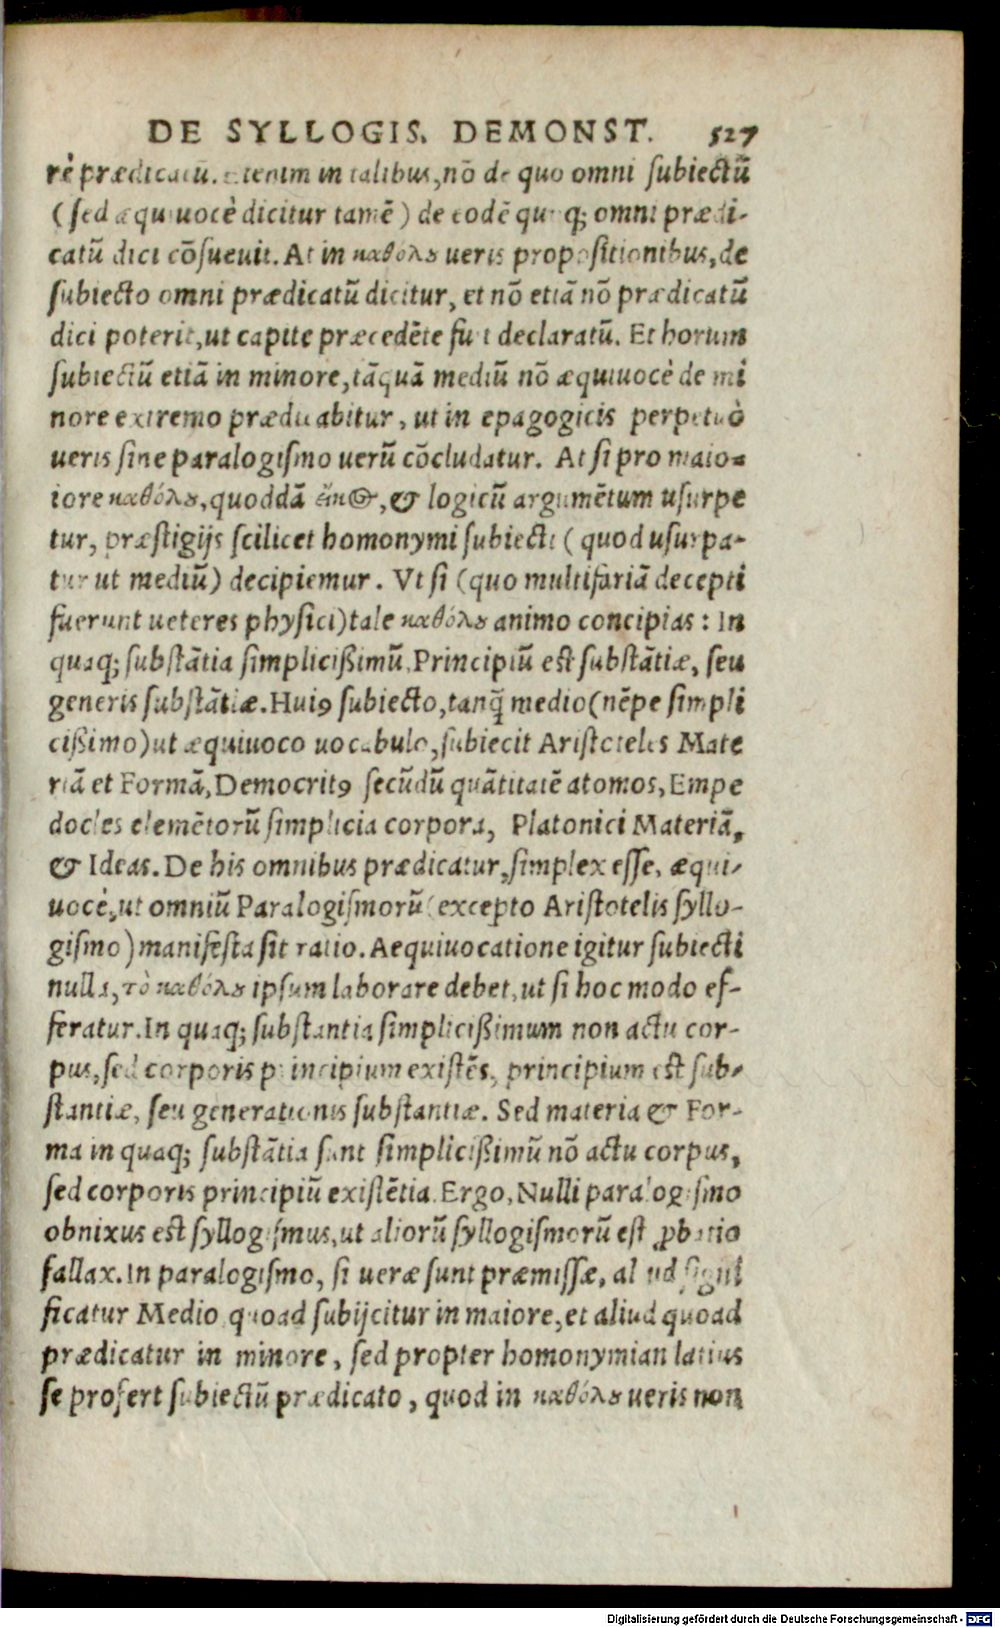 DE SYLLOGIS. DEMONST. 527
rè prædicatū. etenim in talibus, nō de quo omni ſubiectū
(ſed æquiuocè dicitur tamē) de eodē quoq; omni prædi-
catū dici cōſueuit. At in καθόλȣ ueris propoſitionibus, de
ſubiecto omni prædicatū dicitur, et nō etiā nō prædicatū
dici poterit, ut capite præcedēte fuit declaratū. Et horum
ſubiectū etiā in minore, tāquā mediū nō æquiuocè de mi
nore extremo prædicabitur, ut in epagogicis perpetuò
ueris ſine paralogiſmo uerū cōcludatur. At ſi pro maio-
iore καθόλȣ, quoddā & logicū argumētum uſurpe
tur, præſtigijs ſcilicet homonymi ſubiecti (quod uſurpa-
tur ut mediū) decipiemur. Vt ſi (quo multifariā decepti
fuerunt ueteres phyſici) tale καθόλȣ animo concipias: In
quaq; ſubſtātia ſimpliciſsimū, Principiū eſt ſubſtātiæ, ſeu
generis ſubſtātiæ. Huiꝰ ſubiecto, tanq̄ medio (nēpe ſimpli
ciſsimo) ut æquiuoco uocabulo, ſubiecit Ariſtoteles Mate
riā et Formā, Democritꝰ ſecūdū quātitatē atomos, Empe
docles elemētorū ſimplicia corpora, Platonici Materiā,
& Ideas. De his omnibus prædicatur, ſimplex eſſe, æqui-
uocè, ut omniū Paralogiſmorū (excepto Ariſtotelis ſyllo-
giſmo) manifeſta ſit ratio. Aequiuocatione igitur ſubiecti
nulla, τὸ καθόλȣ ipſum laborare debet, ut ſi hoc modo ef-
feratur. In quaq; ſubſtantia ſimpliciſsimum non actu cor-
pus, ſed corporis principium exiſtēs, principium eſt ſub-
ſtantiæ, ſeu generationis ſubſtantiæ. Sed materia & For-
ma in quaq; ſubſtātia ſunt ſimpliciſsimū nō actu corpus,
ſed corporis principiū exiſtētia. Ergo, Nulli paralogiſmo
obnixus eſt ſyllogiſmus, ut aliorū ſyllogiſmorū eſt ꝓbatio
fallax. In paralogiſmo, ſi ueræ ſunt præmiſſæ, aliud ſigni
ficatur Medio quoad ſubijcitur in maiore, et aliud quoad
prædicatur in minore, ſed propter homonymian latius
ſe profert ſubiectū prædicato, quod in καθόλȣ ueris non
Digitalisierung gefördert durch die Deutsche Forschungsgemeinschaft - DFG